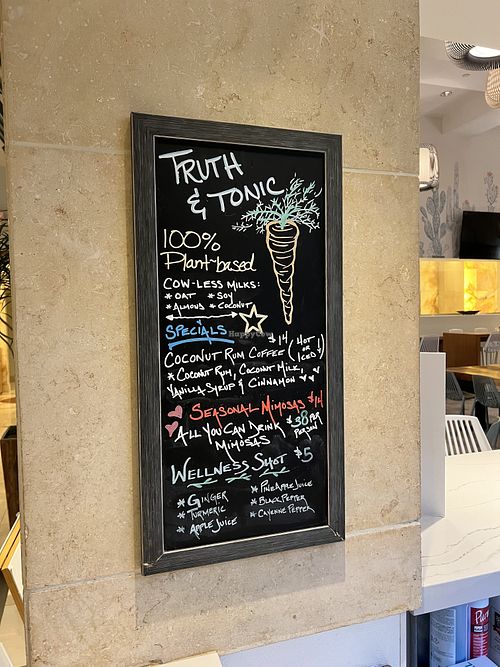 TRUTH
& TONIC
100%
Plant-based
COW-LESS MILKS:
* OAT * SOY
* ALMOND * COCONUT
HappyCow
SPECIALS
$14
COCONUT RUM COFFEE (HOT OR ICED!)
* COCONUT RUM, COCONUT MILK,
VANILLA SYRUP & CINNAMON
SEASONAL MIMOSAS $14
ALL YOU CAN DRINK $38 PER PERSON
MIMOSAS
WELLNESS SHOT $5
* GINGER * PINEAPPLE JUICE
* TURMERIC * BLACK PEPPER
* APPLE JUICE * CAYENNE PEPPER